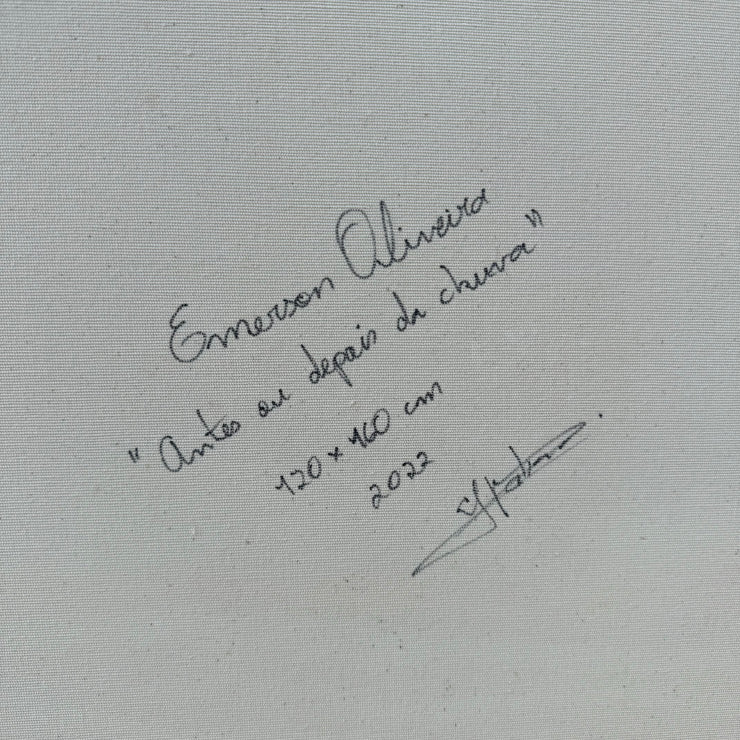 Emerson Oliveira
"Antes ou depois da chuva"
120 x 160 cm
2022